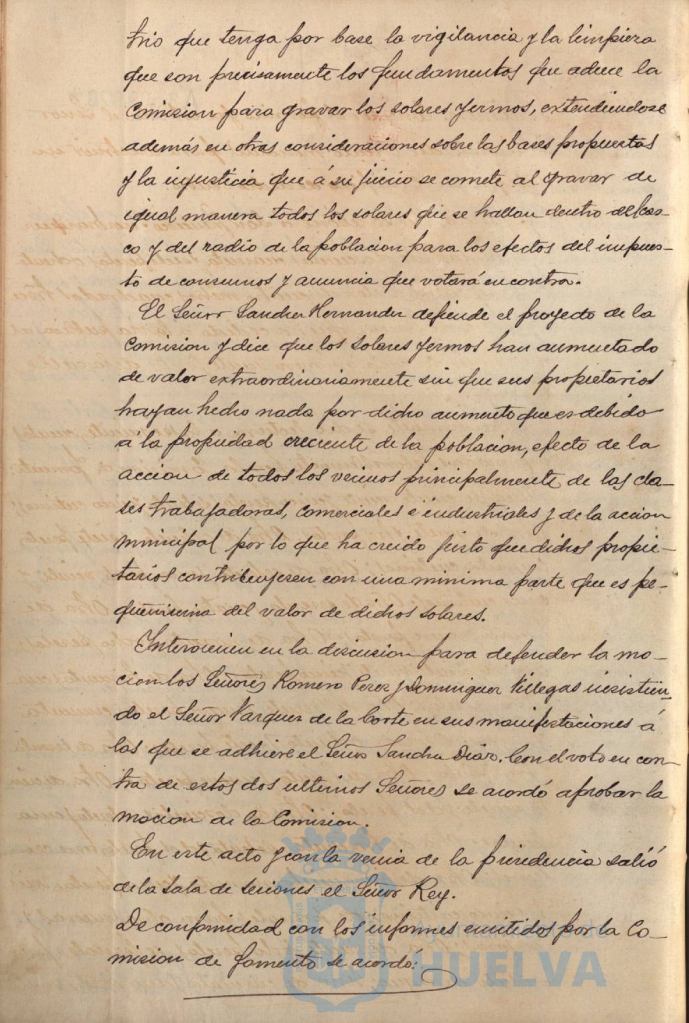 trio que tenga por base la vigilancia y la limpieza
que son precisamente los fundamentos que aduce la
Comision para gravar los solares yermos, extendiendose
además en otras consideraciones sobre las bases propuestas
y la injusticia que á su juicio se comete al gravar de
igual manera todos los solares que se hallan dentro del cas-
co y del radio de la poblacion para los efectos del impues-
to de consumos y anuncia que votará en contra.
El Señor Sanchez Hernandez defiende el proyecto de la
Comision y dice que los solares yermos han aumentado
de valor extraordinariamente sin que sus propietarios
hayan hecho nada por dicho aumento que es debido
á la propiedad creciente de la poblacion, efecto de la
accion de todos los vecinos principalmente de las cla-
ses trabajadoras, comerciales é industriales y de la accion
municipal por lo que ha creido justo que dichos propie-
tarios contribuyesen con una minima parte que es pe-
queñisima del valor de dichos solares.
Intervienen en la discusion para defender la mo-
cion los Señores Romero Perez y Dominguez Villegas insistien-
do el Señor Vazquez de la Corte en sus manifestaciones á
las que se adhiere el Señor Sanchez Diaz. Con el voto en con-
tra de estos dos ultimos Señores se acordó aprobar la
mocion de la Comision.
En este acto y con la venia de la presidencia salió
de la Sala de Sesiones el Señor Rey.
De conformidad con los informes emitidos por la Co-
mision de fomento se acordó:
HUELVA